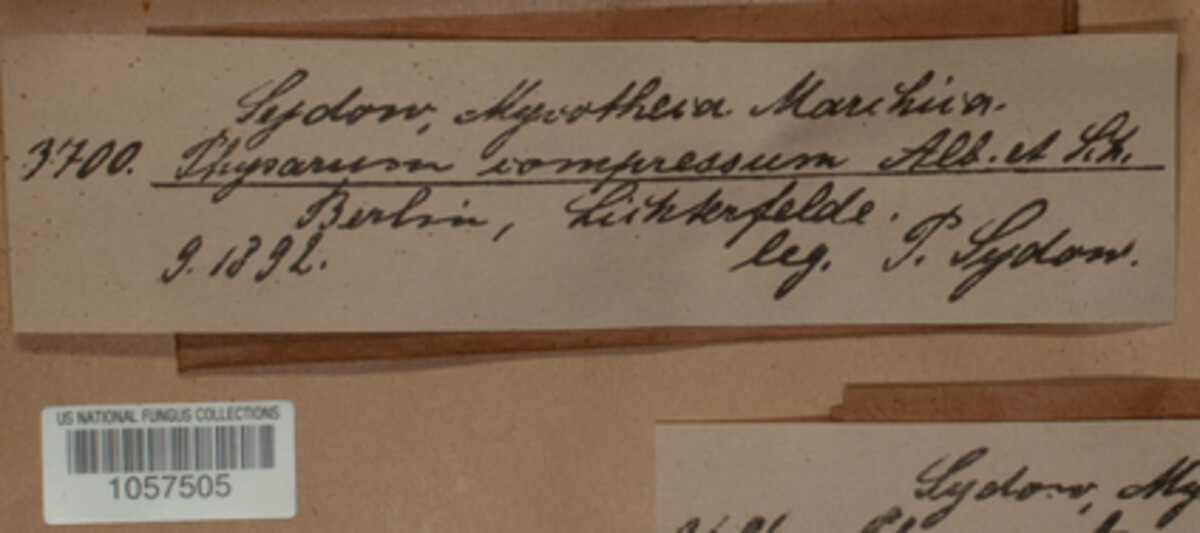 Sydow, Mycotheca Marchica.
3700. Physarum compressum Alb. et Sch.
Berlin, Lichterfelde.
9. 1892. leg. P. Sydow.
US NATIONAL FUNGUS COLLECTIONS
1057505
Sydow, My